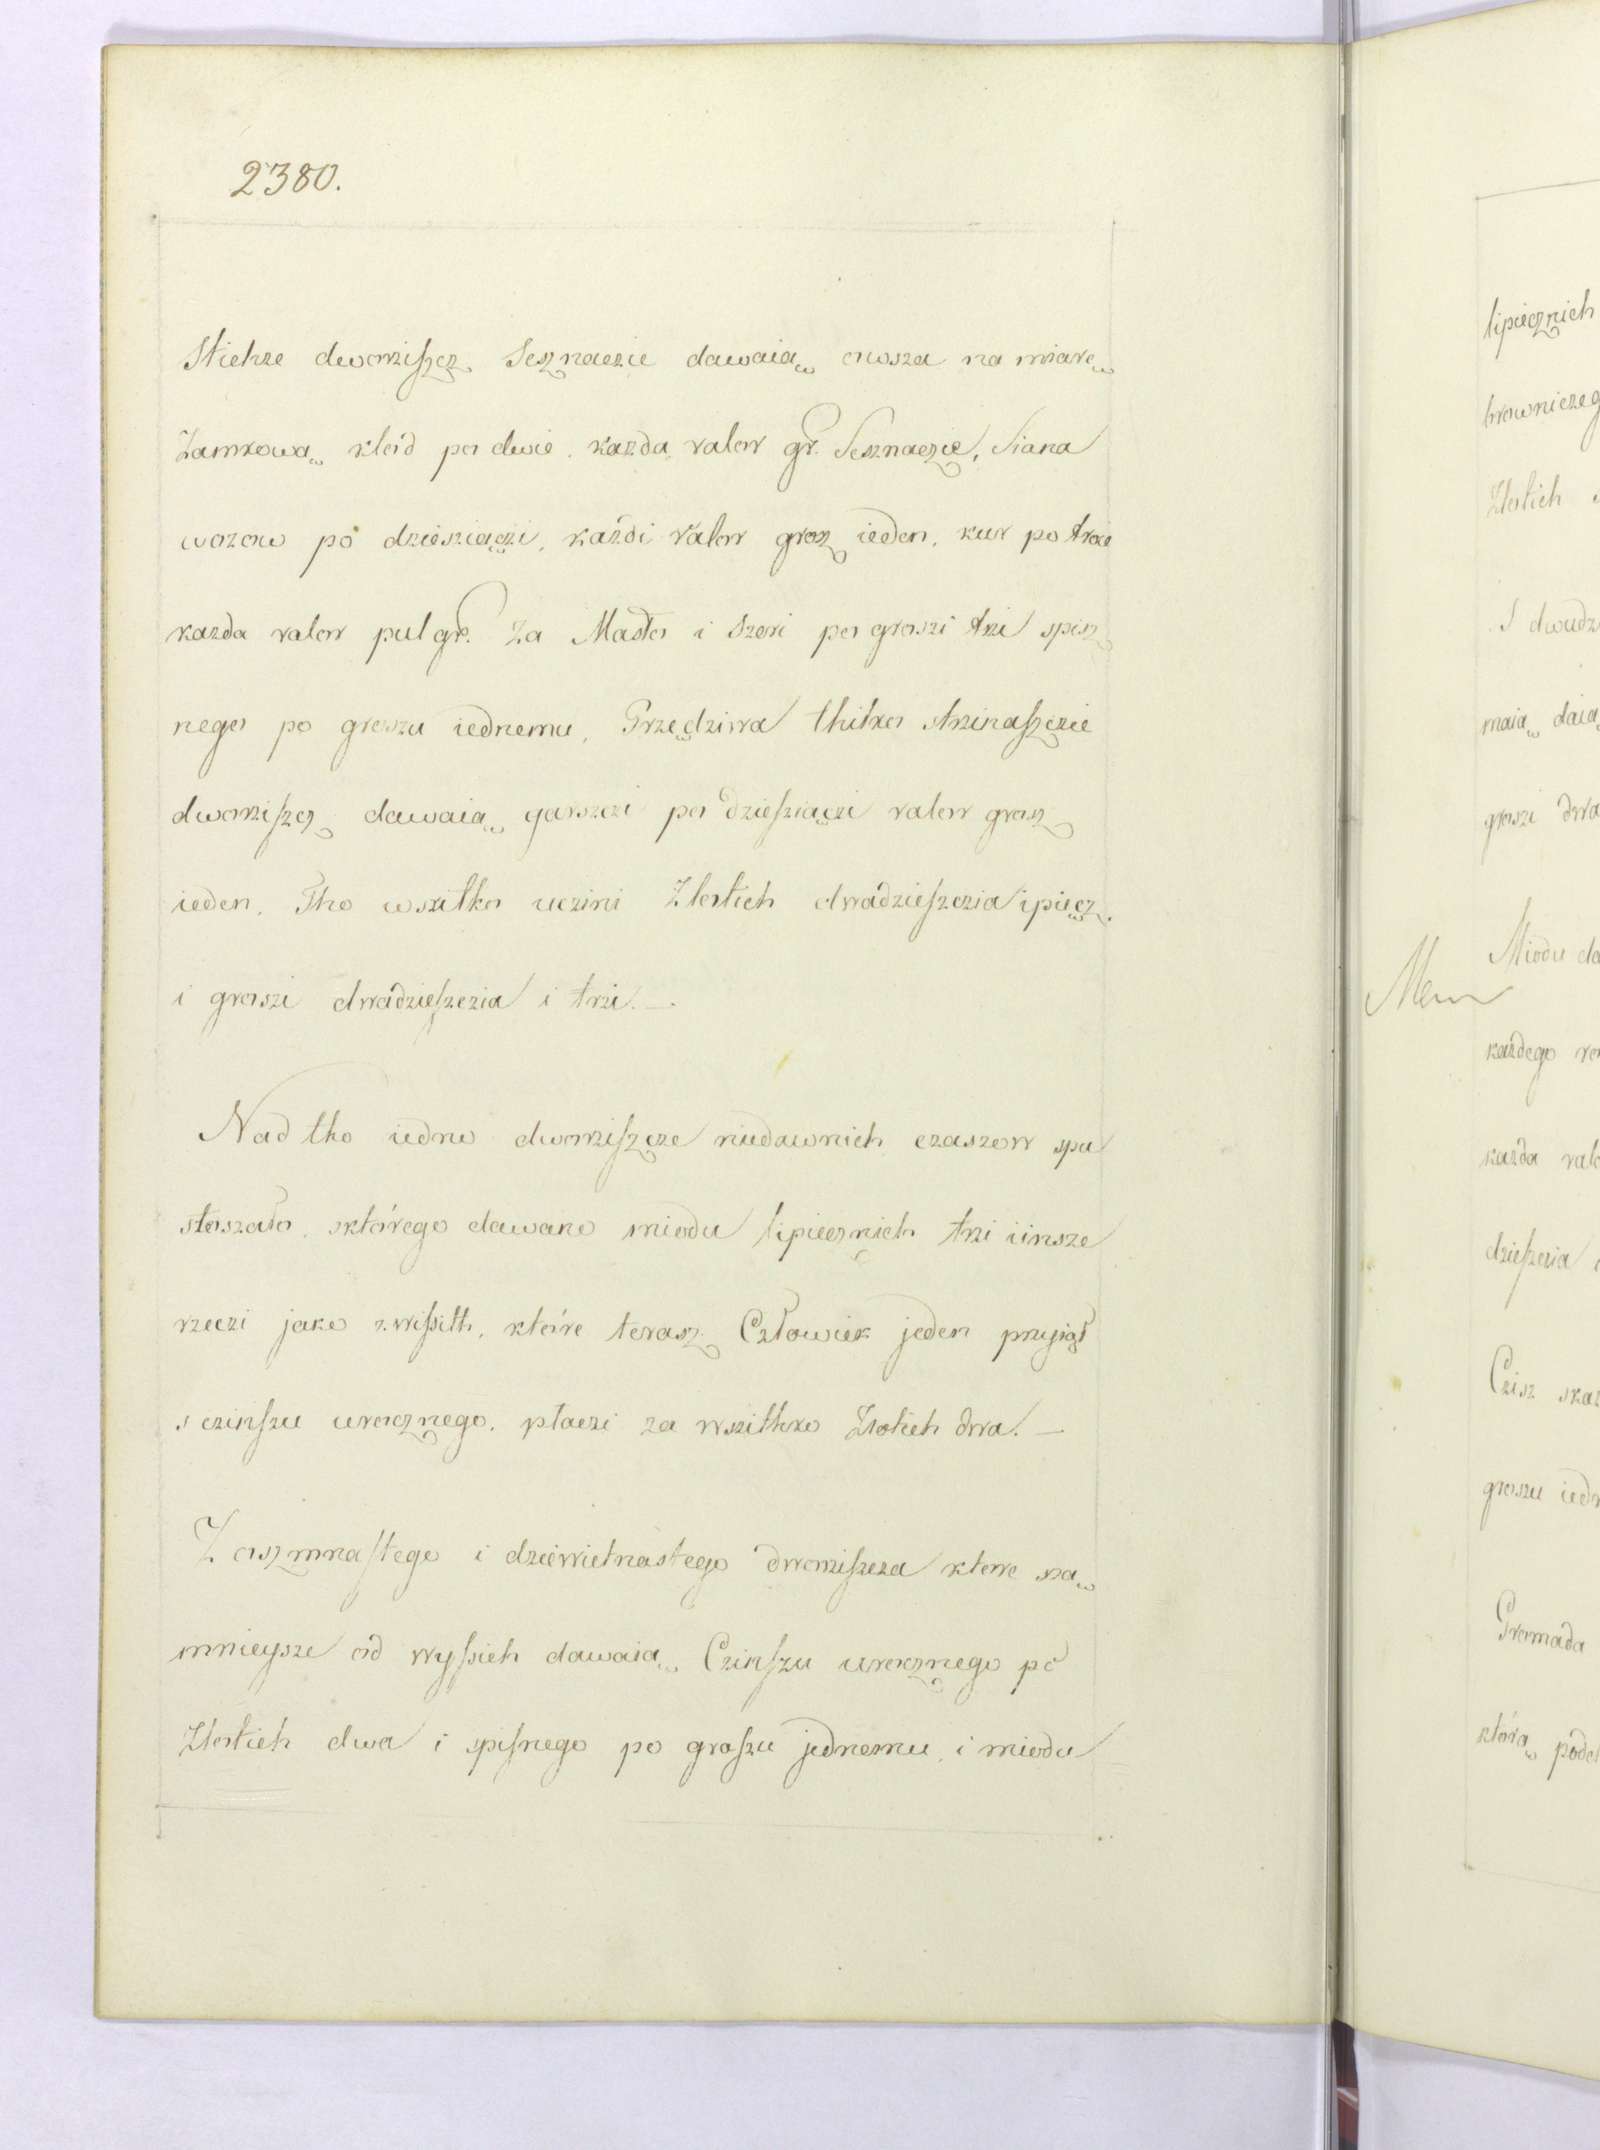 2380.
Stichze dworziszcz Sesznaczie dawaią owsza na miarę
Zamkową kłód po dwie, każda valor gr. Sesznaczie, Siana
wozow po dziesziączi, każdi valor grosz ieden, kur po troie
kazda valor pul gr. Za Masło i szeri po groszi trzi spisz
nego po groszu iednemu, Przędziwa thilko strzinaszczie
dworziszcz dawaią garszczi po dziesziączi valor grosz
ieden, Tho wszitko uczini Złotich dwadzieszczia i pięcz
i groszi dwadzieszczia i trzi.—
Nad tho iedno dworziszcze niedawnich czaszow spu
stoszało, sktórego dawano miodu lipiecznich trzi i insze
rzeczi jako zwissith, które terasz Człowiek jeden przyiął
s czinszu urocznego, płaczi za wszithko Złotich dwa.—
Z oszmnastego i dziewietnastego dworziszcza które szą
mnieysze od wyssich dawaią Czinszu urocznego po
Złotich dwa i spisnego po groszu jednemu, i miodu
lipiecznich
Złotich
S dwudz
maią daią
groszi dwa
Miodu da
Mem
każdego
kazda valo
dzieszczia
Czisz skaz
groszu iedn
Gromada
którą podcz